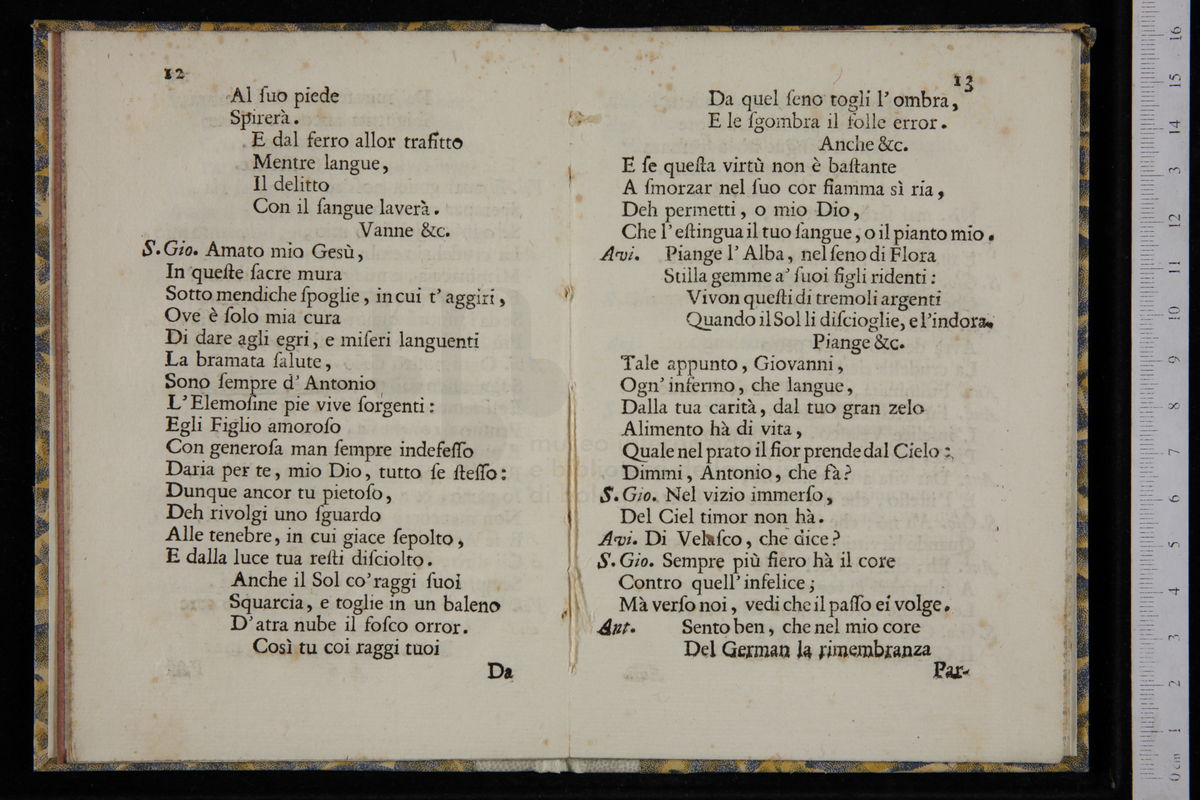 12
Al ſuo piede
Spirerà.
E dal ferro allor trafitto
Mentre langue,
Il delitto
Con il ſangue laverà.
Vanne &c.
S. Gio. Amato mio Gesù,
In queſte ſacre mura
Sotto mendiche ſpoglie, in cui t' aggiri,
Ove è ſolo mia cura
Di dare agli egri, e miſeri languenti
La bramata ſalute,
Sono ſempre d' Antonio
L' Elemoſine pie vive ſorgenti:
Egli Figlio amoroſo
Con generoſa man ſempre indefeſſo
Daria per te, mio Dio, tutto ſe ſteſſo:
Dunque ancor tu pietoſo,
Deh rivolgi uno ſguardo
Alle tenebre, in cui giace ſepolto,
E dalla luce tua reſti diſciolto.
Anche il Sol co' raggi ſuoi
Squarcia, e toglie in un baleno
D' atra nube il foſco orror.
Così tu coi raggi tuoi
Da
13
Da quel ſeno togli l' ombra,
E le ſgombra il folle error.
Anche &c.
E ſe queſta virtù non è baſtante
A ſmorzar nel ſuo cor fiamma sì ria,
Deh permetti, o mio Dio,
Che l' eſtingua il tuo ſangue, o il pianto mio.
Avi. Piange l' Alba, nel ſeno di Flora
Stilla gemme a' ſuoi figli ridenti:
Vivon queſti di tremoli argenti
Quando il Sol li diſcioglie, e l'indora.
Piange &c.
Tale appunto, Giovanni,
Ogn' infermo, che langue,
Dalla tua carità, dal tuo gran zelo
Alimento hà di vita,
Quale nel prato il fior prende dal Cielo:
Dimmi, Antonio, che fà?
S. Gio. Nel vizio immerſo,
Del Ciel timor non hà.
Avi. Di Velaſco, che dice?
S. Gio. Sempre più fiero hà il core
Contro quell' infelice;
Mà verſo noi, vedi che il paſſo ei volge.
Ant. Sento ben, che nel mio core
Del German la rimembranza
Par-
16
15
14
13
12
11
10
9
8
7
6
5
4
3
2
1
0 cm